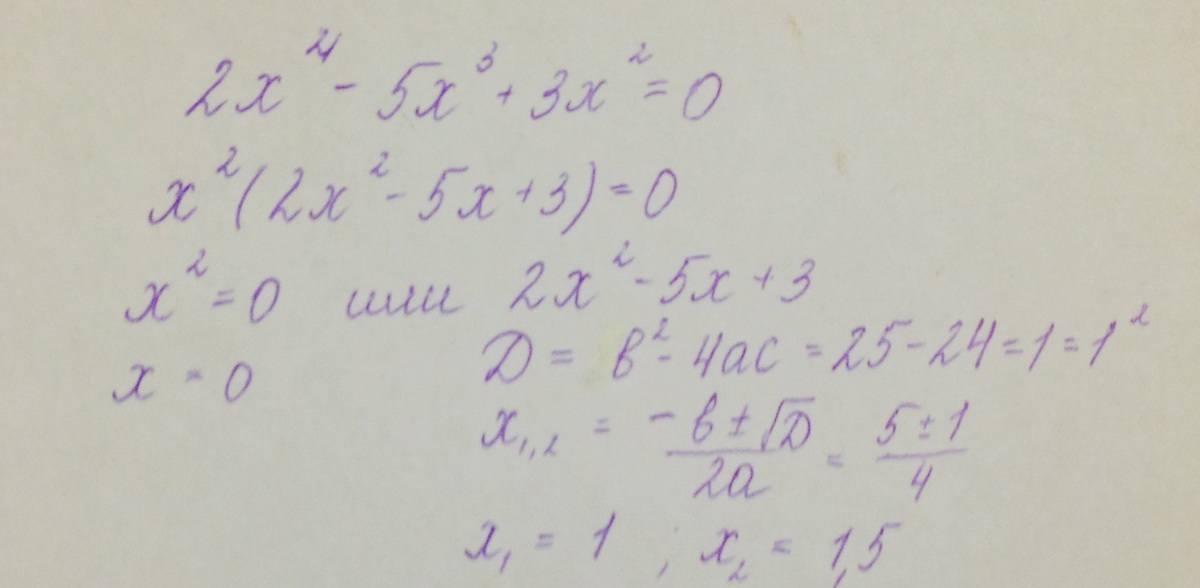 2x⁴ - 5x³ + 3x² = 0
x²(2x² - 5x + 3) = 0
x² = 0 или 2x² - 5x + 3
x = 0
D = b² - 4ac = 25 - 24 = 1 = 1²
x₁,₂ = (-b ± √D)/(2a) = (5 ± 1)/4
x₁ = 1 ; x₂ = 1,5